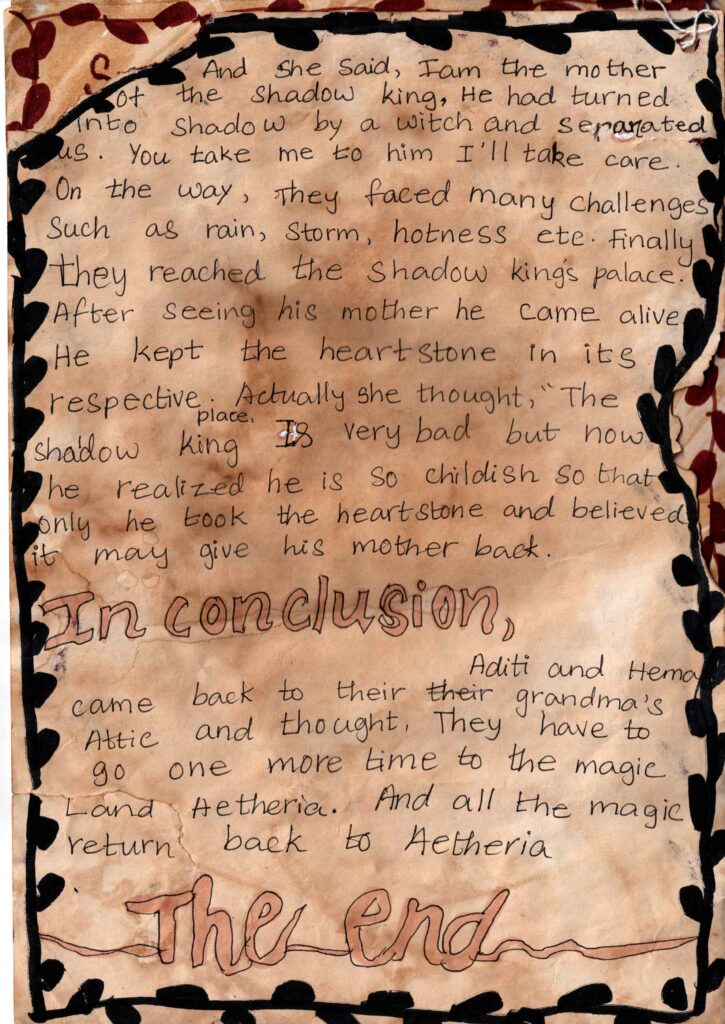 And she said, I am the mother
of the shadow king, He had turned
into shadow by a witch and separated
us. You take me to him I'll take care.
On the way, They faced many challenges
Such as rain, storm, hotness etc. Finally
they reached the shadow king's palace.
After seeing his mother he came alive
He kept the heartstone in its
respective place. Actually she thought, "The
shadow king is very bad but now
he realized he is so childish so that
only he took the heartstone and believed
it may give his mother back.
In conclusion,
Aditi and Hema
came back to their their grandma's
Attic and thought, They have to
go one more time to the magic
Land Aetheria. And all the magic
return back to Aetheria
The end